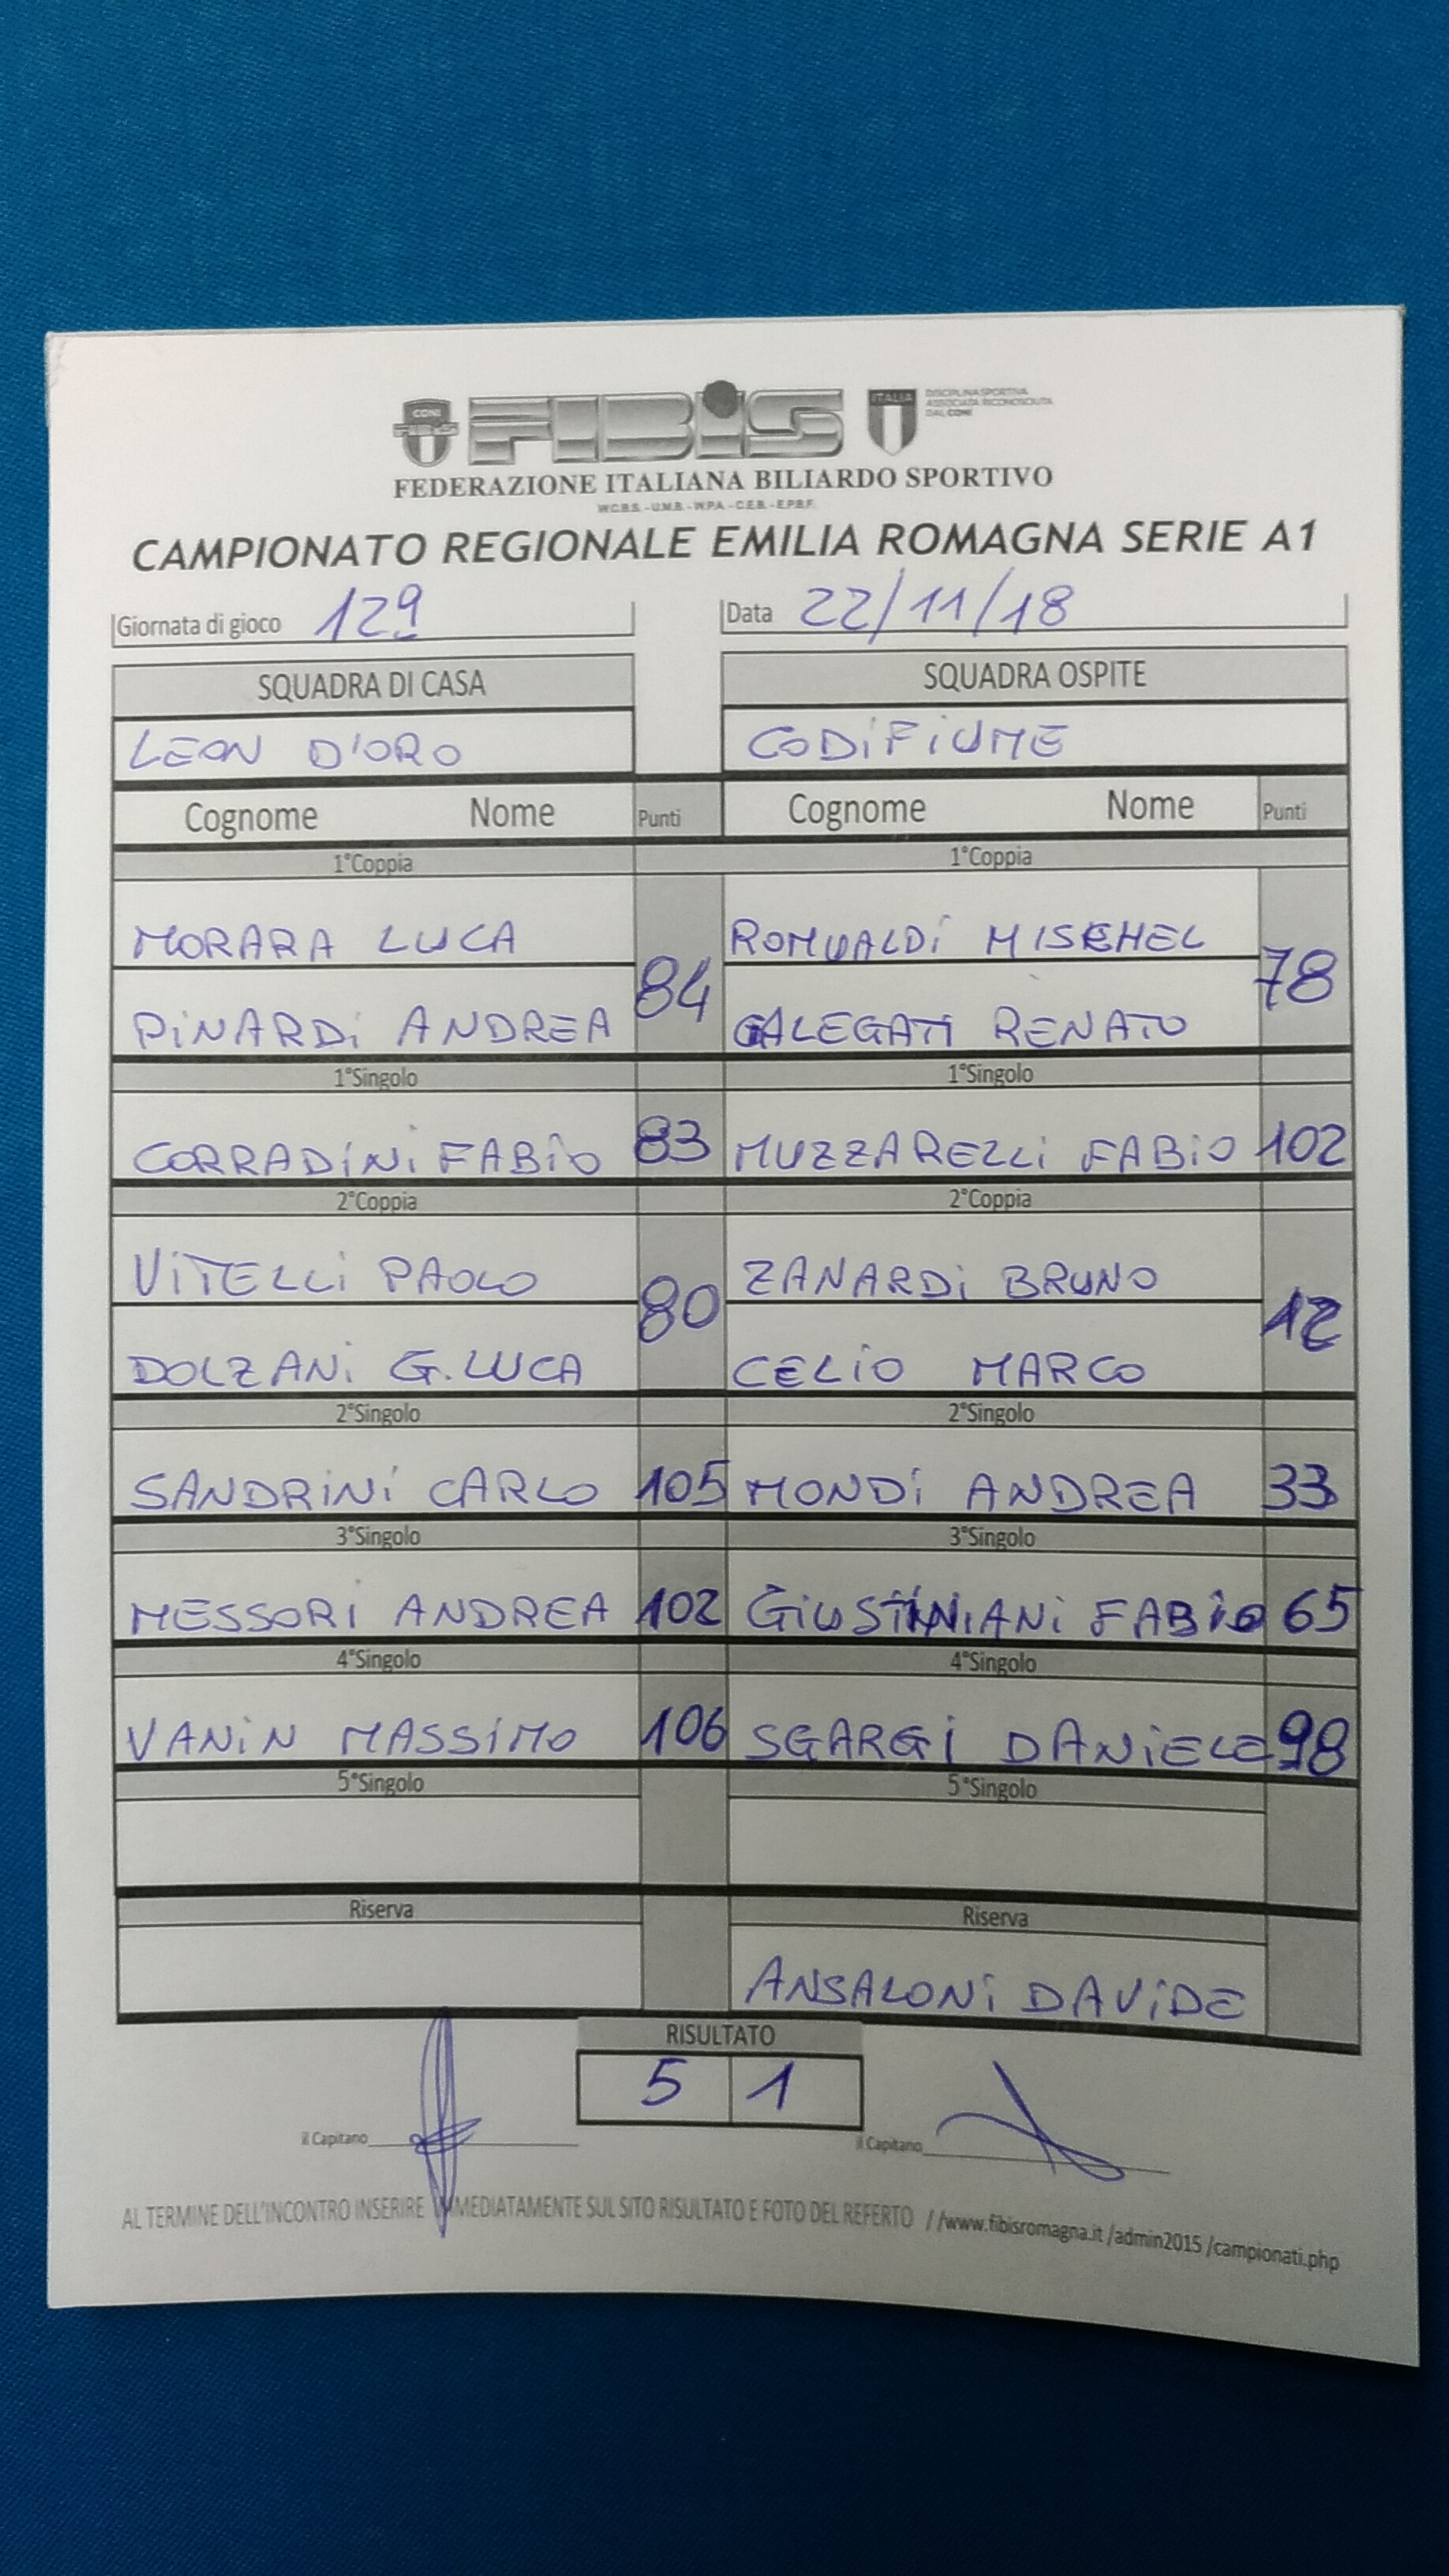 CONI
FIBIS
FIBiS
ITALIA
DISCIPLINA SPORTIVA
ASSOCIATA RICONOSCIUTA
DAL CONI
FEDERAZIONE ITALIANA BILIARDO SPORTIVO
W.C.B.S. - U.M.B. - W.P.A. - C.E.B. - E.P.B.F.
CAMPIONATO REGIONALE EMILIA ROMAGNA SERIE A1
Giornata di gioco 12ª Data 22/11/18
SQUADRA DI CASA SQUADRA OSPITE
LEON D'ORO CODiFiUME
Cognome Nome Punti Cognome Nome Punti
1°Coppia 1°Coppia
MORARA LUCA ROMUALDi
PiNARDi ANDREA 84 GALEGATI RENATO 78
1°Singolo 1°Singolo
CORRADiNi FABiO 83 MUZZARELLi FABiO 102
2°Coppia 2°Coppia
ViTELLi PAOLO ZANARDi BRUNO
DOLZANi G.LUCA 80 CELiO MARCO 12
2°Singolo 2°Singolo
SANDRiNi CARLO 105 MONDi ANDREA 33
3°Singolo 3°Singolo
MESSORI ANDREA 102 GiUSTiNiANi FABiO 65
4°Singolo 4°Singolo
VANiN MASSiMO 106 SGARGi DANiELE 98
5°Singolo 5°Singolo
Riserva Riserva
ANSALONi DAViDE
RISULTATO
5 1
il Capitano il Capitano
AL TERMINE DELL'INCONTRO INSERIRE IMMEDIATAMENTE SUL SITO RISULTATO E FOTO DEL REFERTO //www.fibisromagna.it /admin2015 /campionati.php